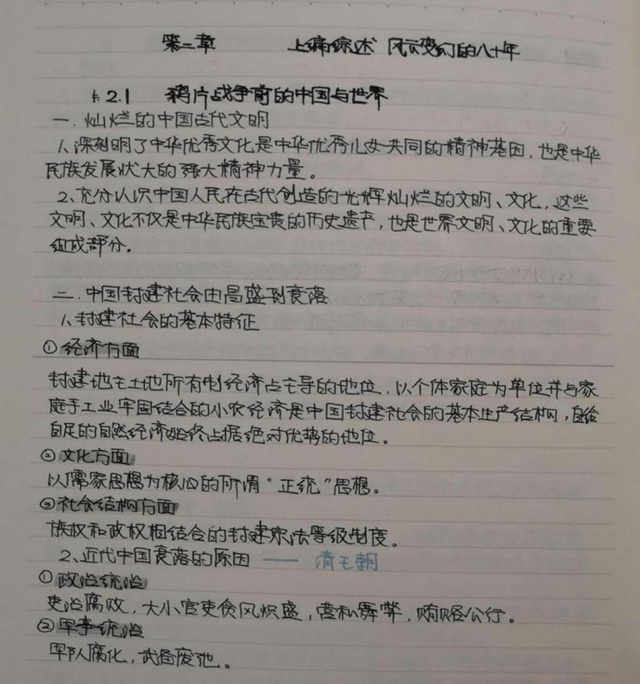 第二章 上编综述 风云变幻的八十年
§2.1 鸦片战争前的中国与世界
一.灿烂的中国古代文明
1、深刻明了中华优秀文化是中华优秀儿女共同的精神基因,也是中华
民族发展状大的强大精神力量。
2、充分认识中国人民在古代创造的光辉灿烂的文明、文化,这些
文明、文化不仅是中华民族宝贵的历史遗产,也是世界文明、文化的重要
组成部分。
二.中国封建社会由昌盛到衰落
1、封建社会的基本特征
①经济方面
封建地主土地所有制经济占主导的地位,以个体家庭为单位并与家
庭手工业牢固结合的小农经济是中国封建社会的基本生产结构,自给
自足的自然经济始终占据绝对优势的地位。
②文化方面
以儒家思想为核心的所谓“正统”思想。
③社会结构方面
族权和政权相结合的封建宗法等级制度。
2、近代中国衰落的原因 —— 清王朝
①政治统治
吏治腐败,大小官吏贪风炽盛,营私舞弊,贿赂公行。
②军事统治
军队腐化,武备废弛。